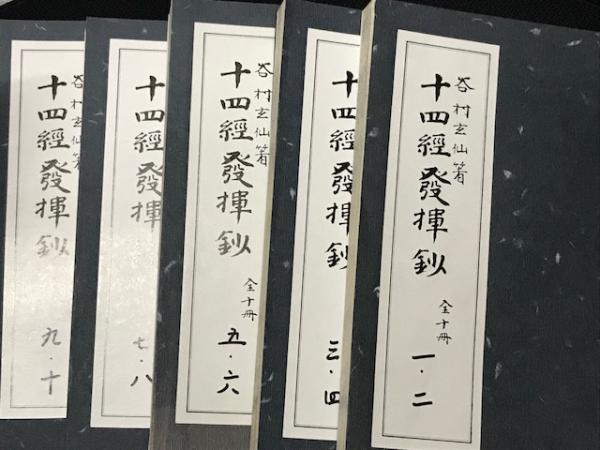 谷村玄仙著
十四經發揮鈔
全十冊
一・二
十四經發揮鈔
三・四
谷村玄仙著
十四經發揮鈔
全十冊
五・六
十四經發揮
七・八
谷村玄仙著
十四經發揮鈔
九・十